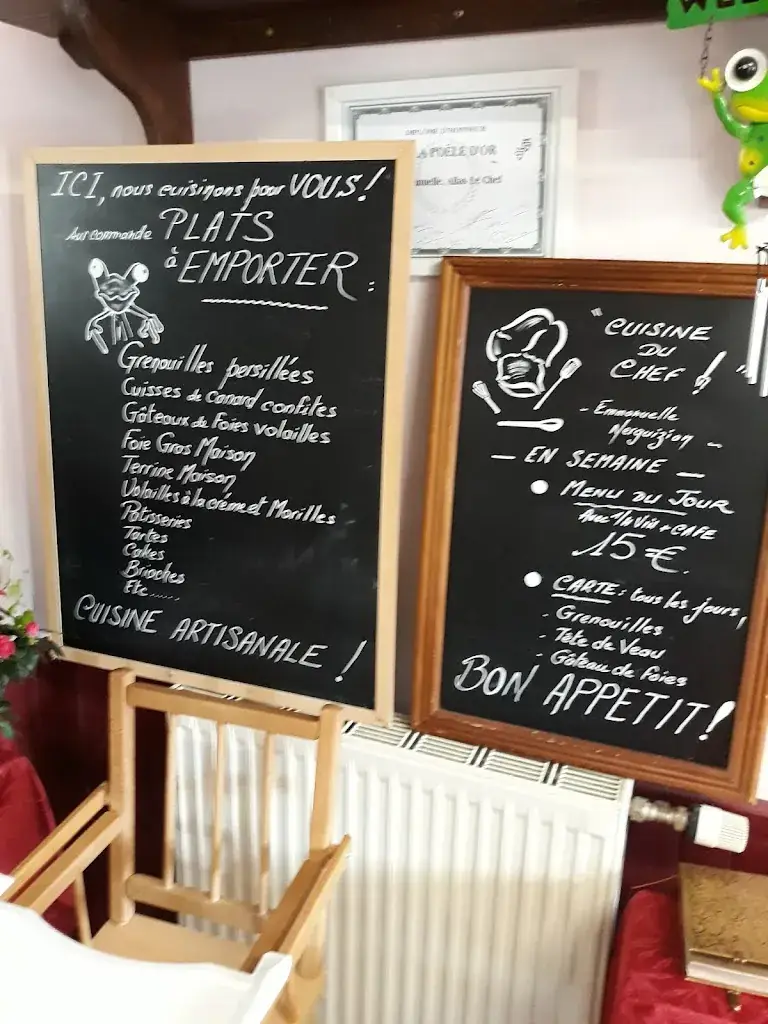 ICI, nous cuisinons pour VOUS!
Sur commande PLATS
à EMPORTER :
Grenouilles persillées
Cuisses de Canard confites
Gâteaux de Foies volailles
Foie Gras Maison
Terrine Maison
Volailles à la crème et Morilles
Pâtisseries
Tartes
Cakes
Brioches
Etc......
CUISINE ARTISANALE !
A POÊLE D'OR
alias Le Chef
"CUISINE
DU
CHEF !"
- Emmanuelle
Nerguizian -
- EN SEMAINE -
MENU DU JOUR
Avec 1/4 Vin + CAFE
15 €.
CARTE : tous les jours,
- Grenouilles
- Tête de Veau
- Gâteau de foies
BON APPETIT!